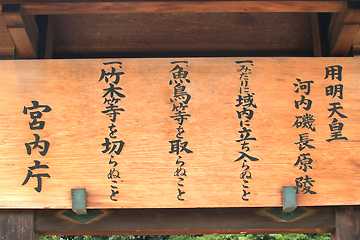 用明天皇
河内磯長原陵
一みだりに域内に立ち入らぬこと
一魚鳥等を取らぬこと
一竹木等を切らぬこと
宮内庁